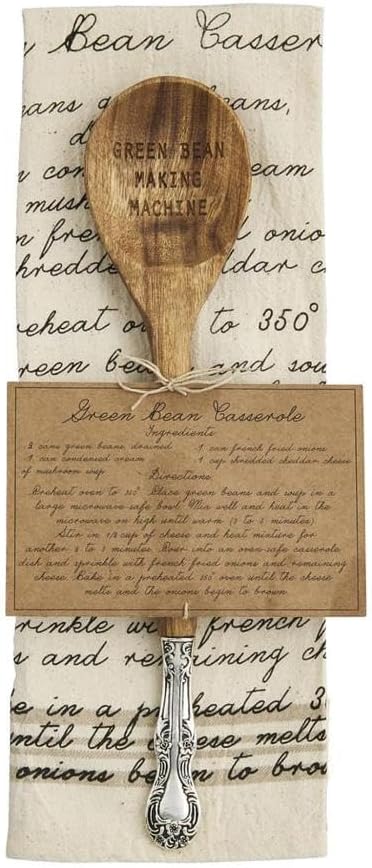 Bean Casser
ans g eans,
d
con eam
mush
n fre onio
hredde dar c
reheat o to 350°
reen be and sou
GREEN BEAN
MAKING
MACHINE
Green Bean Casserole
Ingredients
3 cans green beans drained 1 can french fried onions
1 can condensed cream 1 cup shredded cheddar cheese
of mushroom soup
Directions
Preheat oven to 350° Place green beans and soup in a
large microwave safe bowl Mix well and heat in the
microwave on high until warm (2 to 3 minutes)
Stir in 1/2 cup of cheese and heat mixture for
another 2 to 3 minutes Pour into an oven safe casserole
dish and sprinkle with french fried onions and remaining
cheese. Bake in a preheated 350 oven until the cheese
melts and the onions begin to brown
rinkle wi french f
s and re aining ch
e in a p heated 3
ntil the ese melts
onions be n to brow